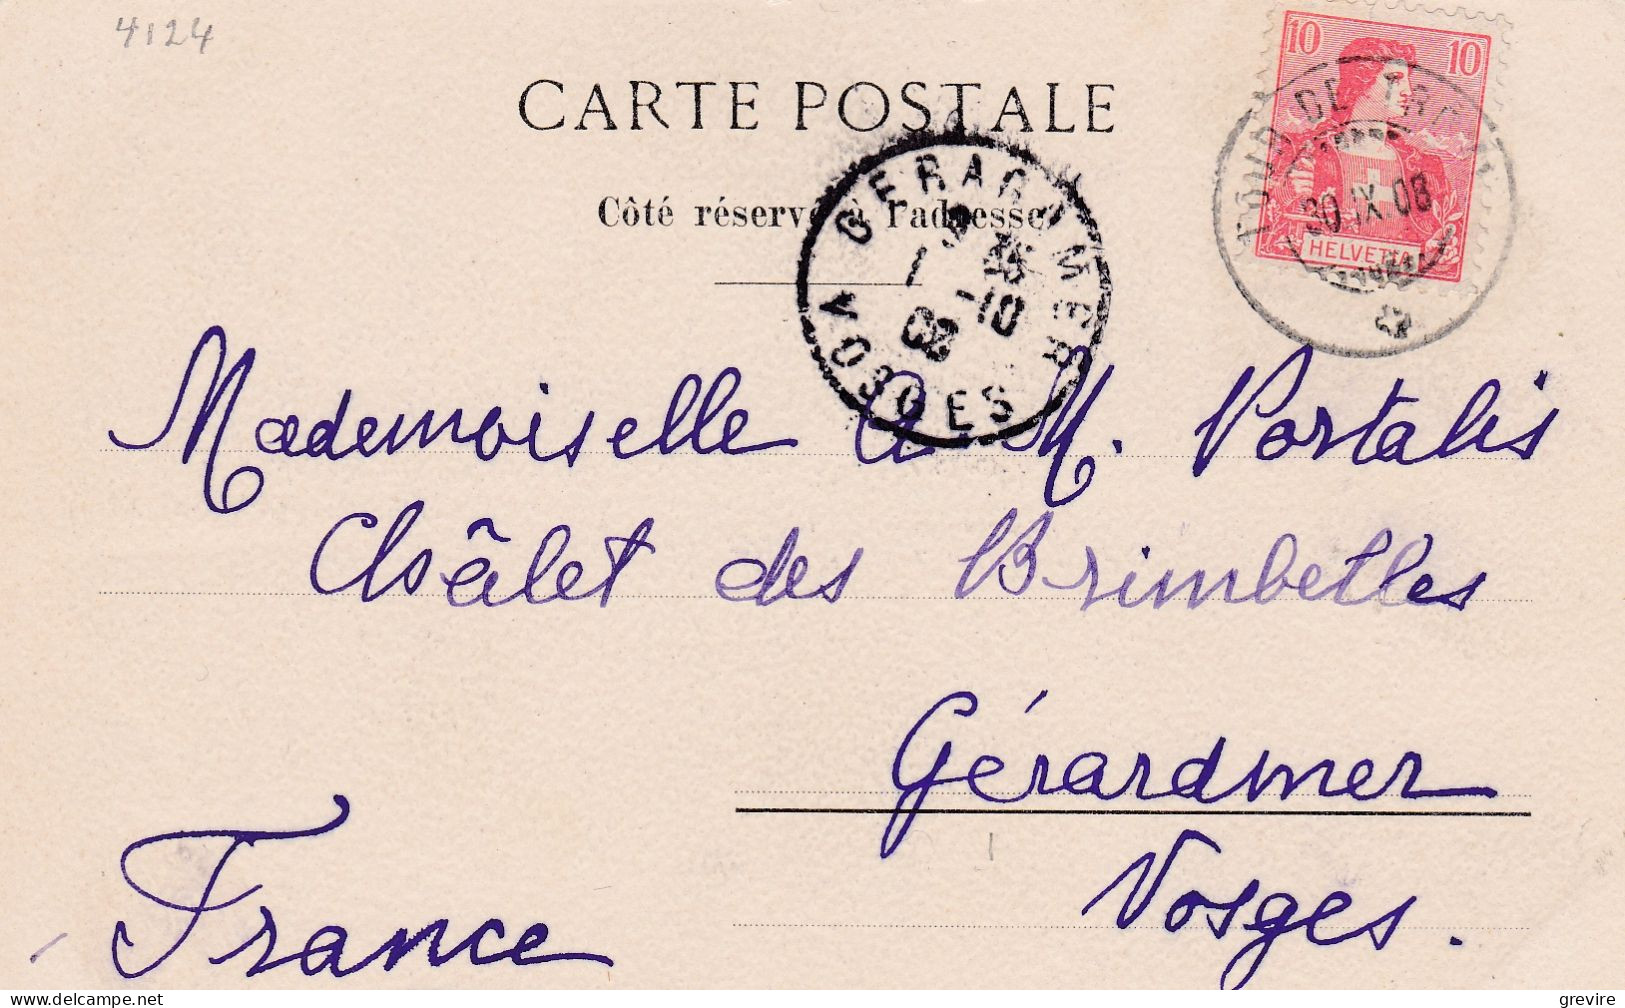 4124
10 10
CARTE POSTALE
30.IX.08
Côté réservé à l'adresse
HELVETIA
GERARDMER
1 -10
08
VOSGES
Mademoiselle A M. Portalis
Châlet des Brimbelles
Gérardmer
Vosges.
France
www.delcampe.net
grevire